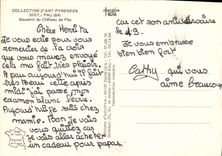 COLLECTION D'ART PYRENEEN
PAU (64)
Souvenir du Château de Pau
Chère
Je vous écris pour vous
remercier de la
que vous m'avez envoyé
cela m'a fait très plaisir.
A pau aujourd'hui il fait
très Beau cette après
midi j'ai passé mon
examen blanc
Aujourd'hui je suis chez
mamie. Bon je vous
vous quittez car
je vais allez acheter
un cadeau pour papa
car c'est son anniversaire
le 19.
Je vous embrasse
bien bien fort
Cathy qui vous
aime beaucoup